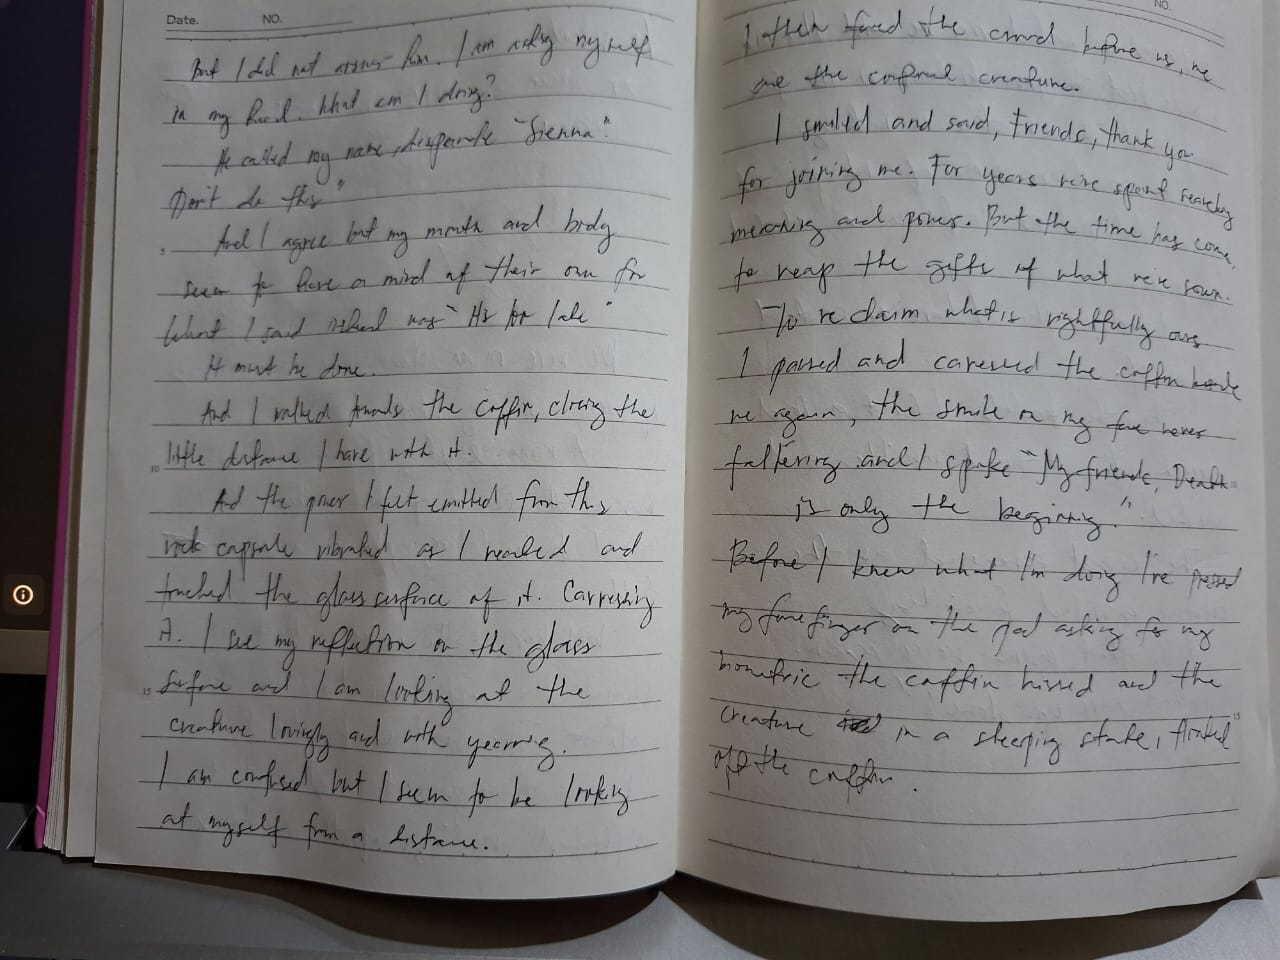 Date. NO.
But I did not answer him. I am asking myself
in my head. What am I doing?
He called my name, desperate "Sienna."
Don't do this"
And I agree but my mouth and body
seem to have a mind of their own for
What I said instead was "It's too late"
It must be done.
And I walked towards the coffin, closing the
little distance I have with it.
And the power I felt emitted from this
rock capsule vibrated as I reached and
touched the glass surface of it. Carressing
it. I see my reflection on the glass
surface and I am looking at the
creature lovingly and with yearning.
I am confused but I seem to be looking
at myself from a distance.
NO.
I then faced the crowd before us, me
and the creature.
I smiled and said, Friends, thank you
for joining me. For years we've spent searching
meaning and power. But the time has come,
to reap the gifts of what we've sown.
To reclaim what is rightfully ours
I paused and caressed the coffin
me again, the smile on my face never
faltering and I spoke "My friends, Death
is only the beginning."
Before I knew what I'm doing I've pressed
my forefinger on the pad asking for my
biometric the coffin hissed and the
creature in a sleeping state, floated
off the coffin.
5
10
15
15